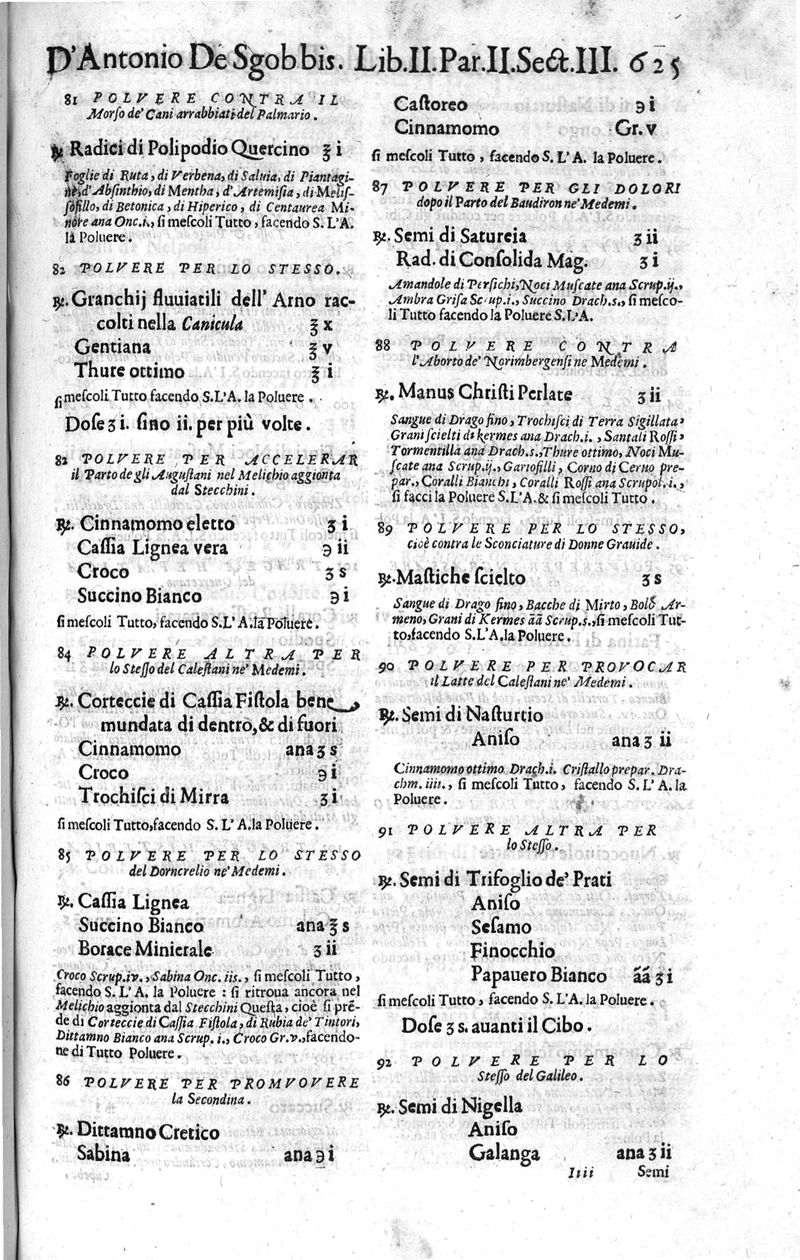 D'Antonio De Sgobbis. Lib.II.Par.II.Sect.III. 625
81 POLVERE CONTRA IL
Morso de' Cani arrabbiati del Palmario.
℞ Radici di Polipodio Quercino ℥ i
Foglie di Ruta, di Verbena, di Saluia, di Piantagi-
ne, d'Absinthio, di Mentha, d'Artemisia, di Melis-
sofillo, di Betonica, di Hiperico, di Centaurea Mi-
nore ana Onc.i., ſi meſcoli Tutto, facendo S.L'A.
la Poluere.
82 POLVERE PER LO STESSO.
℞. Granchij fluuiatili dell' Arno rac-
colti nella Canicula ℥ x
Gentiana ℥ v
Thure ottimo ℥ i
ſi meſcoli Tutto facendo S.L'A. la Poluere.
Doſe ʒ i. ſino ii. per più volte.
82 POLVERE PER ACCELERAR
il Parto de gli Auguſtani nel Melichio aggionta
dal Stecchini.
℞. Cinnamomo eletto ʒ i
Caſſia Lignea vera ℈ ii
Croco ʒ s
Succino Bianco ℈ i
ſi meſcoli Tutto, facendo S.L' A. la Poluere.
84 POLVERE ALTRA PER
lo Steſſo del Caleſtani ne' Medemi.
℞. Corteccie di Caſſia Fiſtola bene
mundata di dentro, & di fuori
Cinnamomo ana ʒ s
Croco ℈ i
Trochiſci di Mirra ʒ i
ſi meſcoli Tutto, facendo S. L' A. la Poluere.
85 POLVERE PER LO STESSO
del Dorncrelio ne' Medemi.
℞. Caſſia Lignea
Succino Bianco ana ℥ s
Borace Minierale ʒ ii
Croco Scrup.iv., Sabina Onc. iis., ſi meſcoli Tutto,
facendo S. L' A. la Poluere : ſi ritroua ancora nel
Melichio aggionta dal Stecchini Queſta, cioè ſi pré-
de di Corteccie di Caſſia Fiſtola, di Rubia de' Tintori,
Dittamno Bianco ana Scrup. i., Croco Gr.v., facendo-
ne di Tutto Poluere.
86 POLVERE PER PROMVOVERE
la Secondina.
℞. Dittamno Cretico
Sabina ana ℈ i
Caſtoreo ℈ i
Cinnamomo Gr. v
ſi meſcoli Tutto, facendo S. L' A. la Poluere.
87 POLVERE PER GLI DOLORI
dopo il Parto del Baudiron ne' Medemi.
℞. Semi di Satureia ʒ ii
Rad. di Conſolida Mag. ʒ i
Amandole di Perſichi, Noci Muſcate ana Scrup.ij.,
Ambra Griſa Scrup.i., Succino Drach.s., ſi meſco-
li Tutto facendo la Poluere S.L'A.
88 POLVERE CONTRA
l'Aborto de' Norimbergenſi ne Medemi.
℞. Manus Chriſti Perlate ʒ ii
Sangue di Drago fino, Trochiſci di Terra Sigillata,
Grani ſcielti di kermes ana Drach.i., Santali Roſſi,
Tormentilla ana Drach.s., Thure ottimo, Noci Mu-
ſcate ana Scrup.ij., Gariofilli, Corno di Ceruo pre-
par., Coralli Bianchi, Coralli Roſſi ana Scrupol.i.,
ſi facci la Poluere S.L'A. & ſi meſcoli Tutto.
89 POLVERE PER LO STESSO,
cioè contra le Sconciature di Donne Grauide.
℞. Maſtiche ſcielto ʒ s
Sangue di Drago fino, Bacche di Mirto, Bolo Ar-
meno, Grani di Kermes ãã Scrup.s., ſi meſcoli Tut-
to, facendo S.L'A. la Poluere.
90 POLVERE PER PROVOCAR
il Latte del Caleſtani ne' Medemi.
℞. Semi di Naſturtio
Aniſo ana ʒ ii
Cinnamomo ottimo Drach.i. Criſtallo prepar. Dra-
chm. iiii., ſi meſcoli Tutto, facendo S. L'A. la
Poluere.
91 POLVERE ALTRA PER
lo Steſſo.
℞. Semi di Trifoglio de' Prati
Aniſo
Seſamo
Finocchio
Papauero Bianco ãã ʒ i
ſi meſcoli Tutto, facendo S. L'A. la Poluere.
Doſe ʒ s. auanti il Cibo.
92 POLVERE PER LO
Steſſo del Galileo.
℞. Semi di Nigella
Aniſo
Galanga ana ʒ ii
Iiii Semi